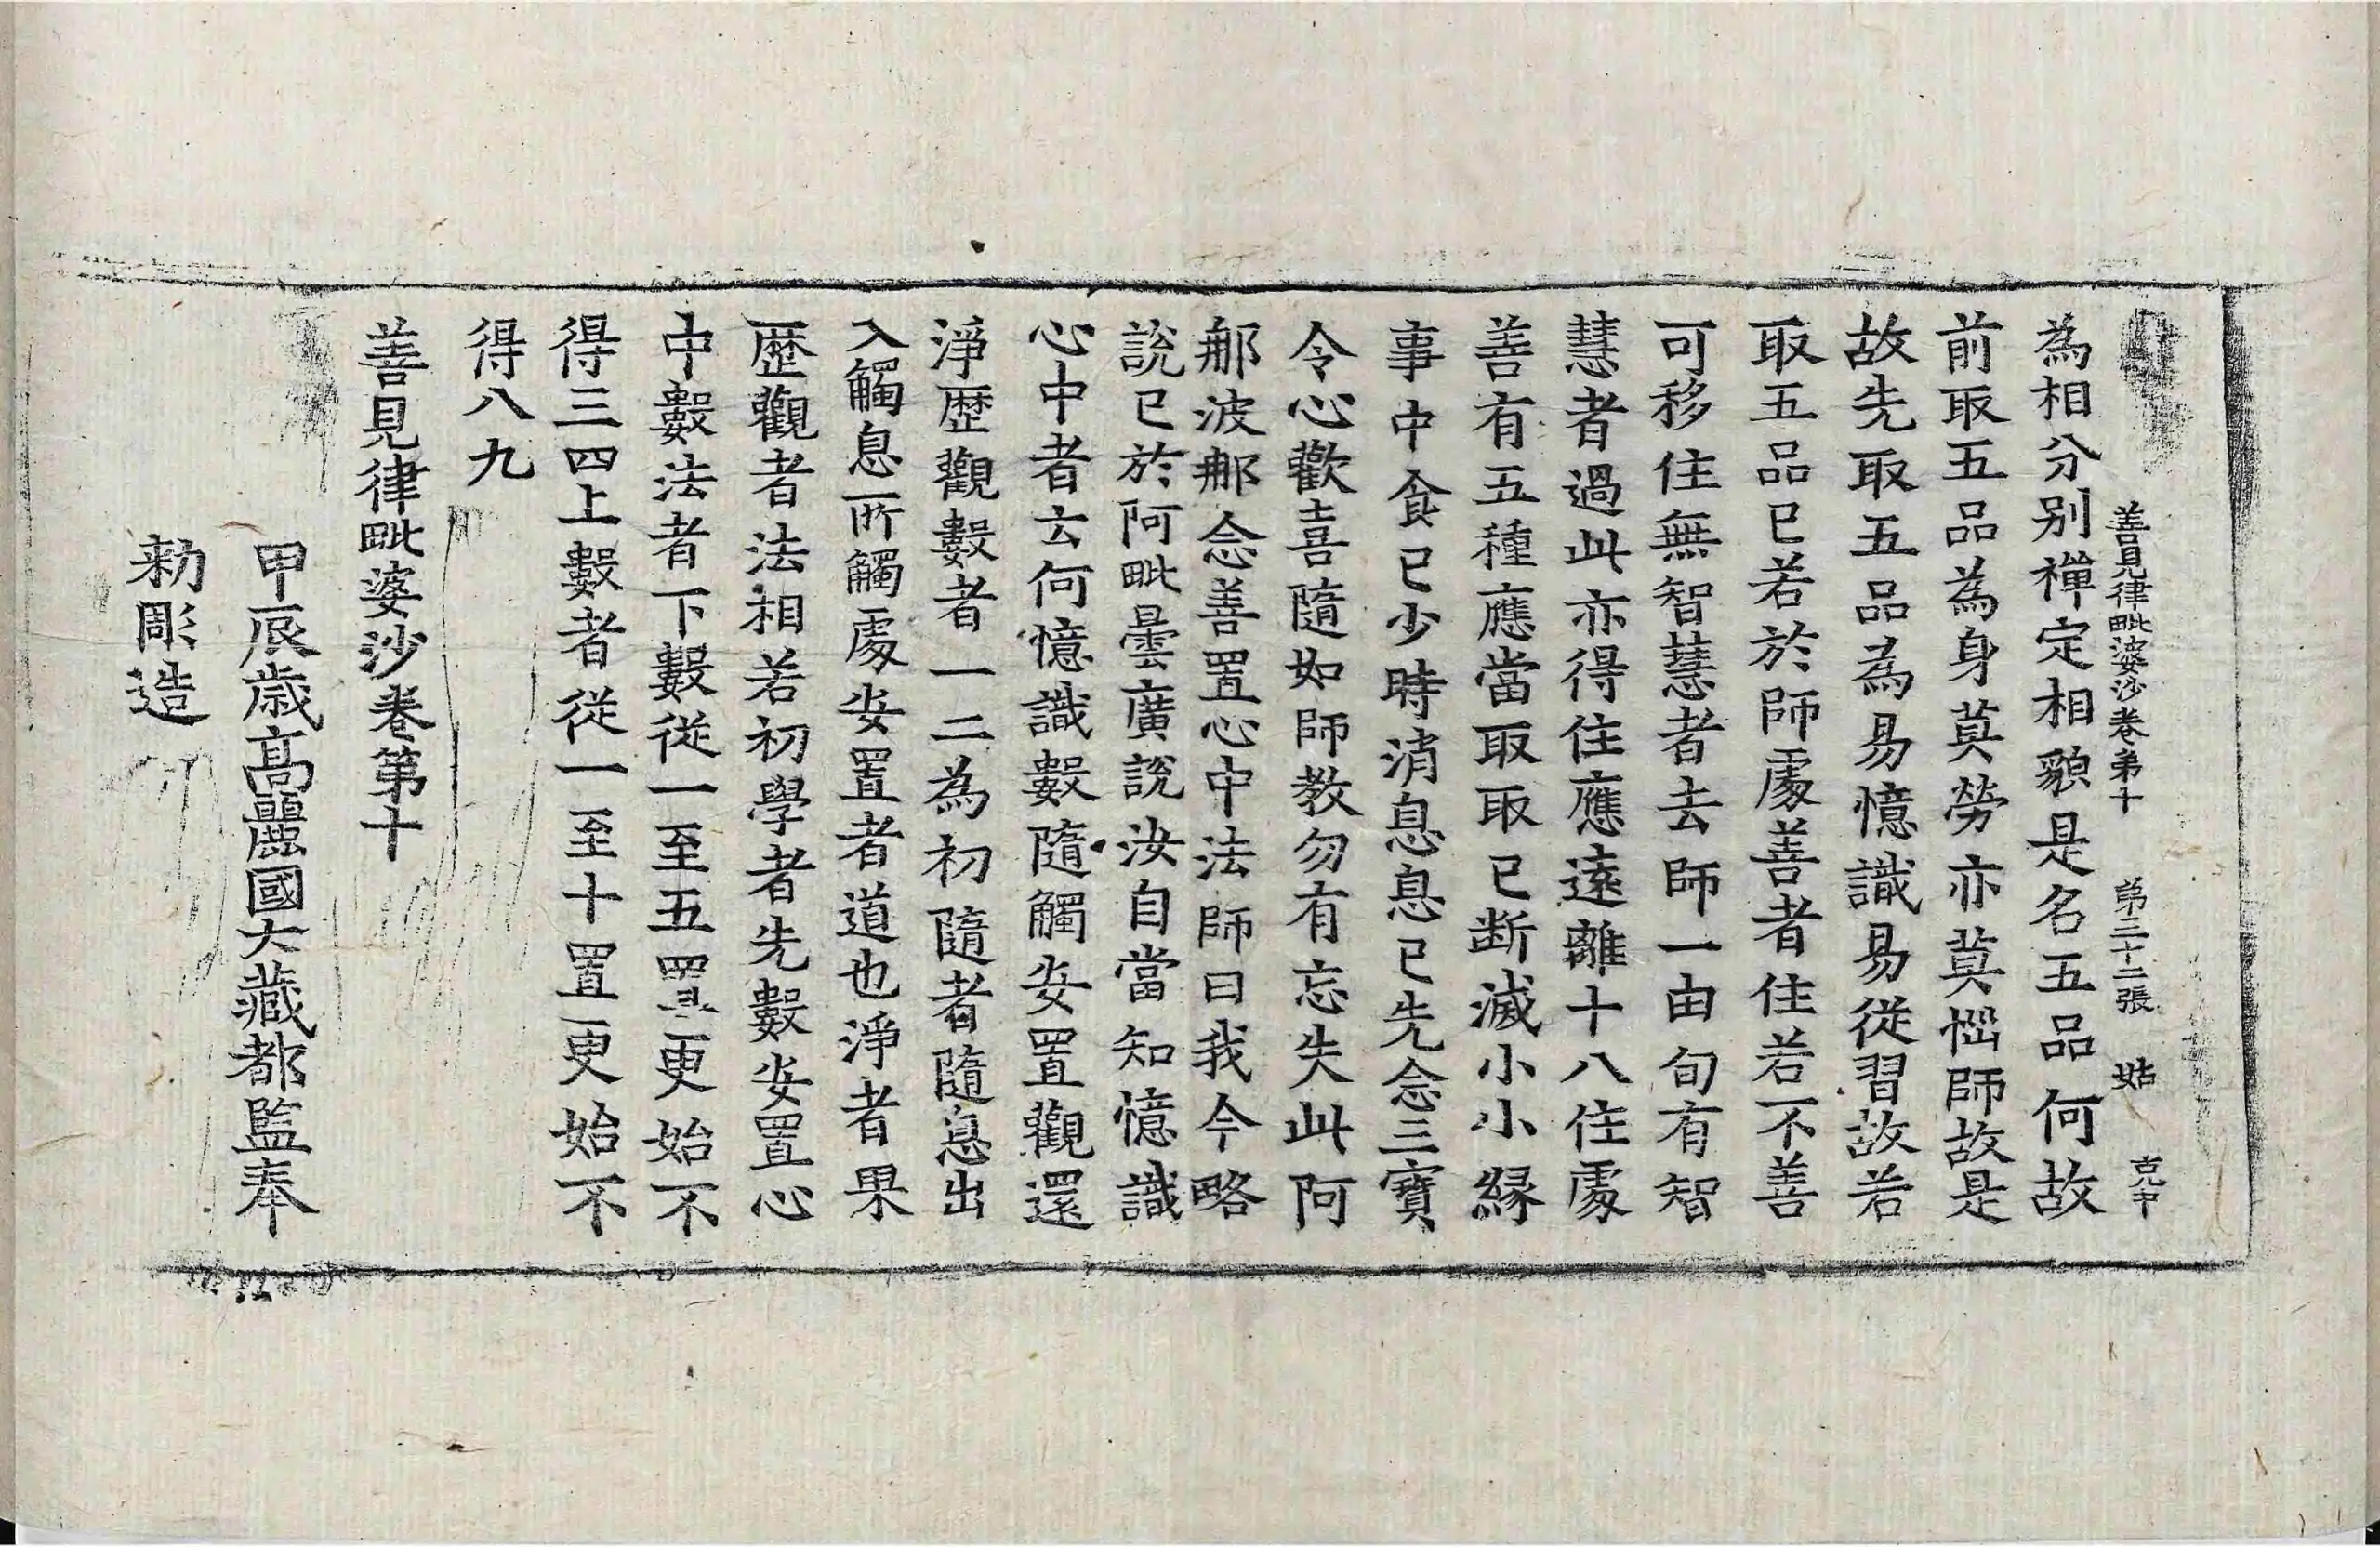 善見律毗婆沙卷第十 第三十二張 姑 克中
為相分別禪定相貌是名五品何故
前取五品為身莫勞亦莫惱師故是
故先取五品為易憶識易從習故若
取五品已若於師處善者住若不善
可移住無智慧者去師一由旬有智
慧者過此亦得住應遠離十八住處
善有五種應當取取已断滅小小緣
事中食已少時消息息已先念三寶
令心歡喜隨如師教勿有忘失此阿
那波那念善置心中法師曰我今略
說已於阿毗曇廣說汝自當知憶識
心中者云何憶識數隨觸安置觀還
淨歷觀數者一二為初隨者隨息出
入觸息所觸處安置者道也淨者果
歷觀者法相若初學者先數安置心
中數法者下數從一至五置更始不
得三四上數者從一至十置更始不
得八九
善見律毗婆沙卷第十
甲辰歲高麗國大藏都監奉
勑彫造